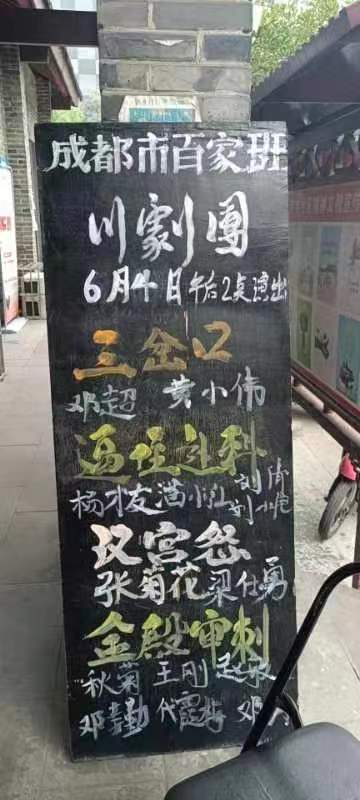 成都市百家班
川劇團
6月4日午后2点演出
三岔口
邓超 黄小伟
逼侄赴科
杨才友 满小
汉宫怨
张菊花 梁仕勇
金殿审刺
秋菊 王刚
邓 勤 代霞梅 邓